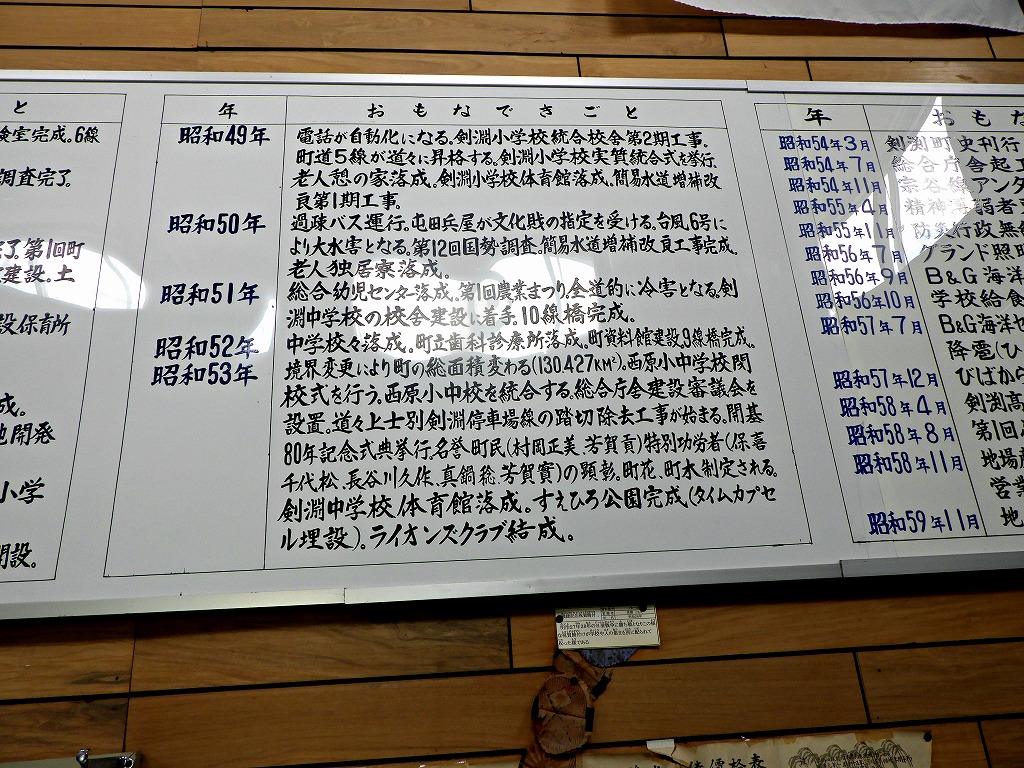 と
検室完成。6線
調査完了。
完了。第1回町
建設。土
設保育所
成。
地開発
小学
開設。
年 おもなできごと
昭和49年 電話が自動化になる。剣淵小学校統合校舎第2期工事。
町道5線が道々に昇格する。剣淵小学校実質統合式を挙行、
老人憩の家落成。剣淵小学校体育館落成。簡易水道増補改
良第1期工事。
昭和50年 過疎バス運行。屯田兵屋が文化財の指定を受ける。台風6号に
より大水害となる。第12回国勢調査。簡易水道増補改良工事完成。
老人独居寮落成。
昭和51年 総合幼児センター落成。第1回農業まつり。全道的に冷害となる。剣
淵中学校の校舎建設に着手。10線橋完成。
昭和52年 中学校々落成。町立歯科診療所落成。町資料館建設。9線橋完成。
昭和53年 境界変更により町の総面積変わる(130.427KM²)。西原小中学校閉
校式を行う。西原小中校を統合する。総合庁舎建設審議会を
設置。道々上士別剣淵停車場線の踏切除去工事が始まる。開基
80年記念式典挙行。名誉町民(村岡正美、芳賀貢)特別功労者(保喜
千代松、長谷川久作、真鍋総、芳賀實)の顕彰。町花、町木制定される。
剣淵中学校体育館落成。すえひろ公園完成(タイムカプセ
ル埋設)。ライオンズクラブ結成。
年 おもな
昭和54年3月 剣淵町史刊行
昭和54年7月 総合庁舎起工
昭和54年11月 宗谷線アンダ
昭和55年4月 精神薄弱者
昭和55年11月 防災行政無
昭和56年7月 グランド照
昭和56年9月 B&G海洋
昭和56年10月 学校給食
昭和57年7月 B&G海洋セ
降雹(ひ
昭和57年12月 びばから
昭和58年4月 剣淵高
昭和58年8月 第1回
昭和58年11月 地場産
営業
昭和59年11月 地
価格表